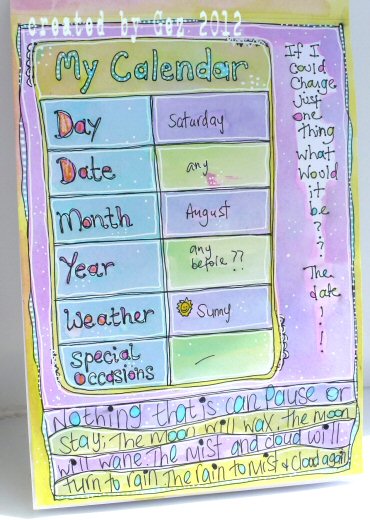 created by Gez 2012
My Calendar
Day Saturday
Date any
Month August
Year any before ??
Weather Sunny
Special Occasions –
If I
could
change
just
one
thing
what
would
it
be
? . ? .
The
date
! . !
Nothing that is can pause or
stay; The moon will wax, the moon
will wane The mist and cloud will
turn to rain The rain to mist & cloud again!